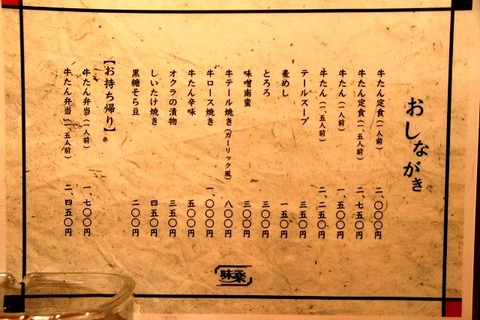 おしながき
牛たん定食(一人前) 二、〇〇〇円
牛たん定食(一、五人前) 二、七五〇円
牛たん(一人前) 一、五〇〇円
牛たん(一、五人前) 二、二五〇円
テールスープ 五〇〇円
麦めし 一五〇円
とろろ 三〇〇円
味噌南蛮 三〇〇円
牛テール焼き(ガーリック風) 八〇〇円
牛ロース焼き 一、〇〇〇円
牛たん辛味 五〇〇円
オクラの漬物 三五〇円
しいたけ焼き 四五〇円
黒糖そら豆 二〇〇円
【お持ち帰り】
牛たん弁当(一人前) 一、七〇〇円
牛たん弁当(一、五人前) 二、四五〇円
味楽